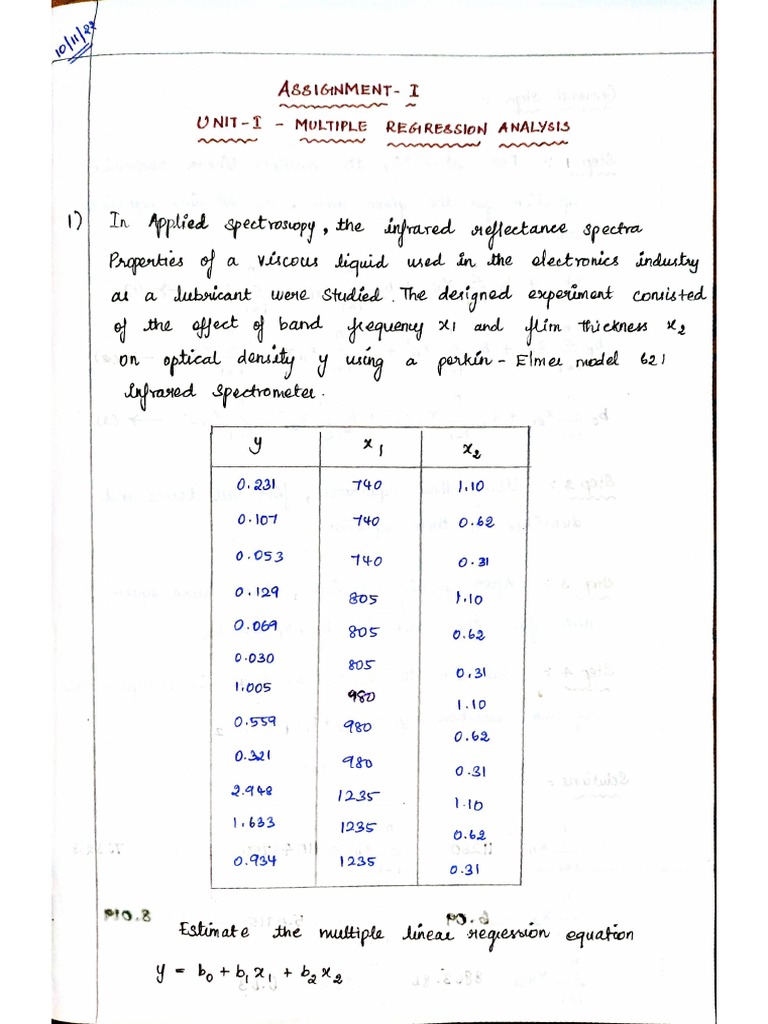 10/11/22
ASSIGNMENT - I
UNIT-I - MULTIPLE REGRESSION ANALYSIS
1) In Applied spectroscopy, the infrared reflectance spectra
Properties of a viscous liquid used in the electronics industry
as a lubricant were studied. The designed experiment consisted
of the effect of band frequency x1 and flim thickness x2
on optical density y using a perkin - Elmer model 621
Infrared Spectrometer.
y x1 x2
0.231 740 1.10
0.107 740 0.62
0.053 740 0.31
0.129 805 1.10
0.069 805 0.62
0.030 805 0.31
1.005 980 1.10
0.559 980 0.62
0.321 980 0.31
2.948 1235 1.10
1.633 1235 0.62
0.934 1235 0.31
Estimate the multiple linear regression equation
y = b0 + b1x1 + b2x2